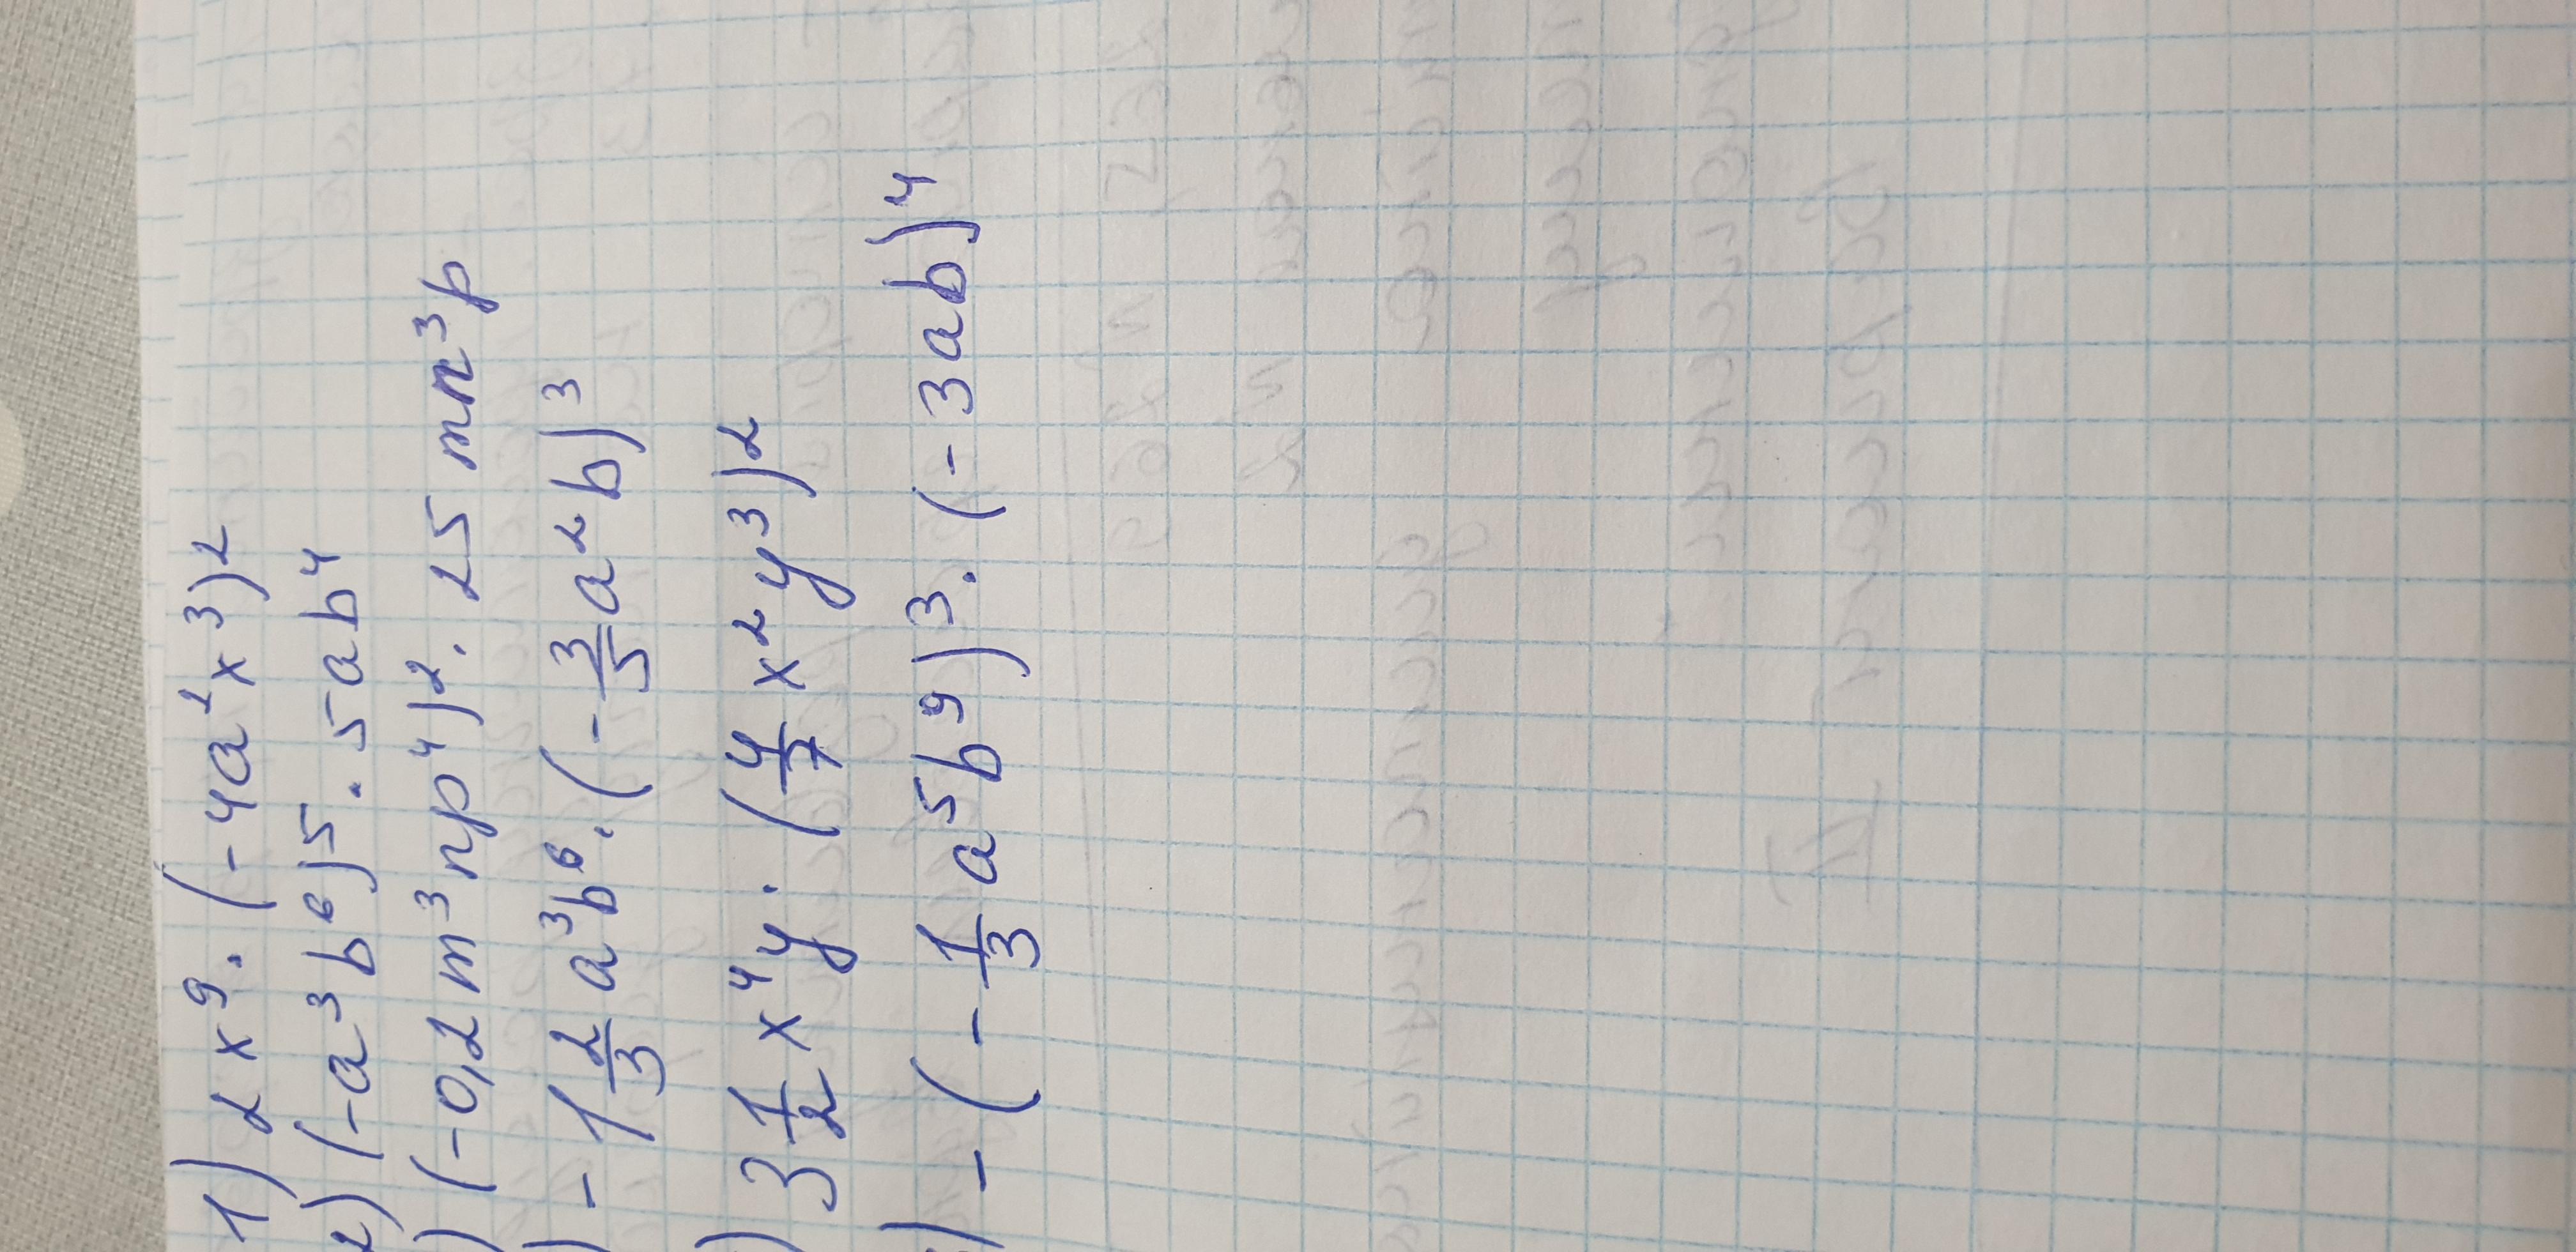 1) 2x⁹ · (-4a²x³)²
2) (-a³b⁶)⁵ · 5ab⁴
) (-0,2m³np⁴)² · 25mn³p
) -1 2/3 a³b⁶ · (-3/5 a²b)³
) 3 1/2 x⁴y · (4/7 x²y³)²
) -(-1/3 a⁵b⁹)³ · (-3ab)⁴